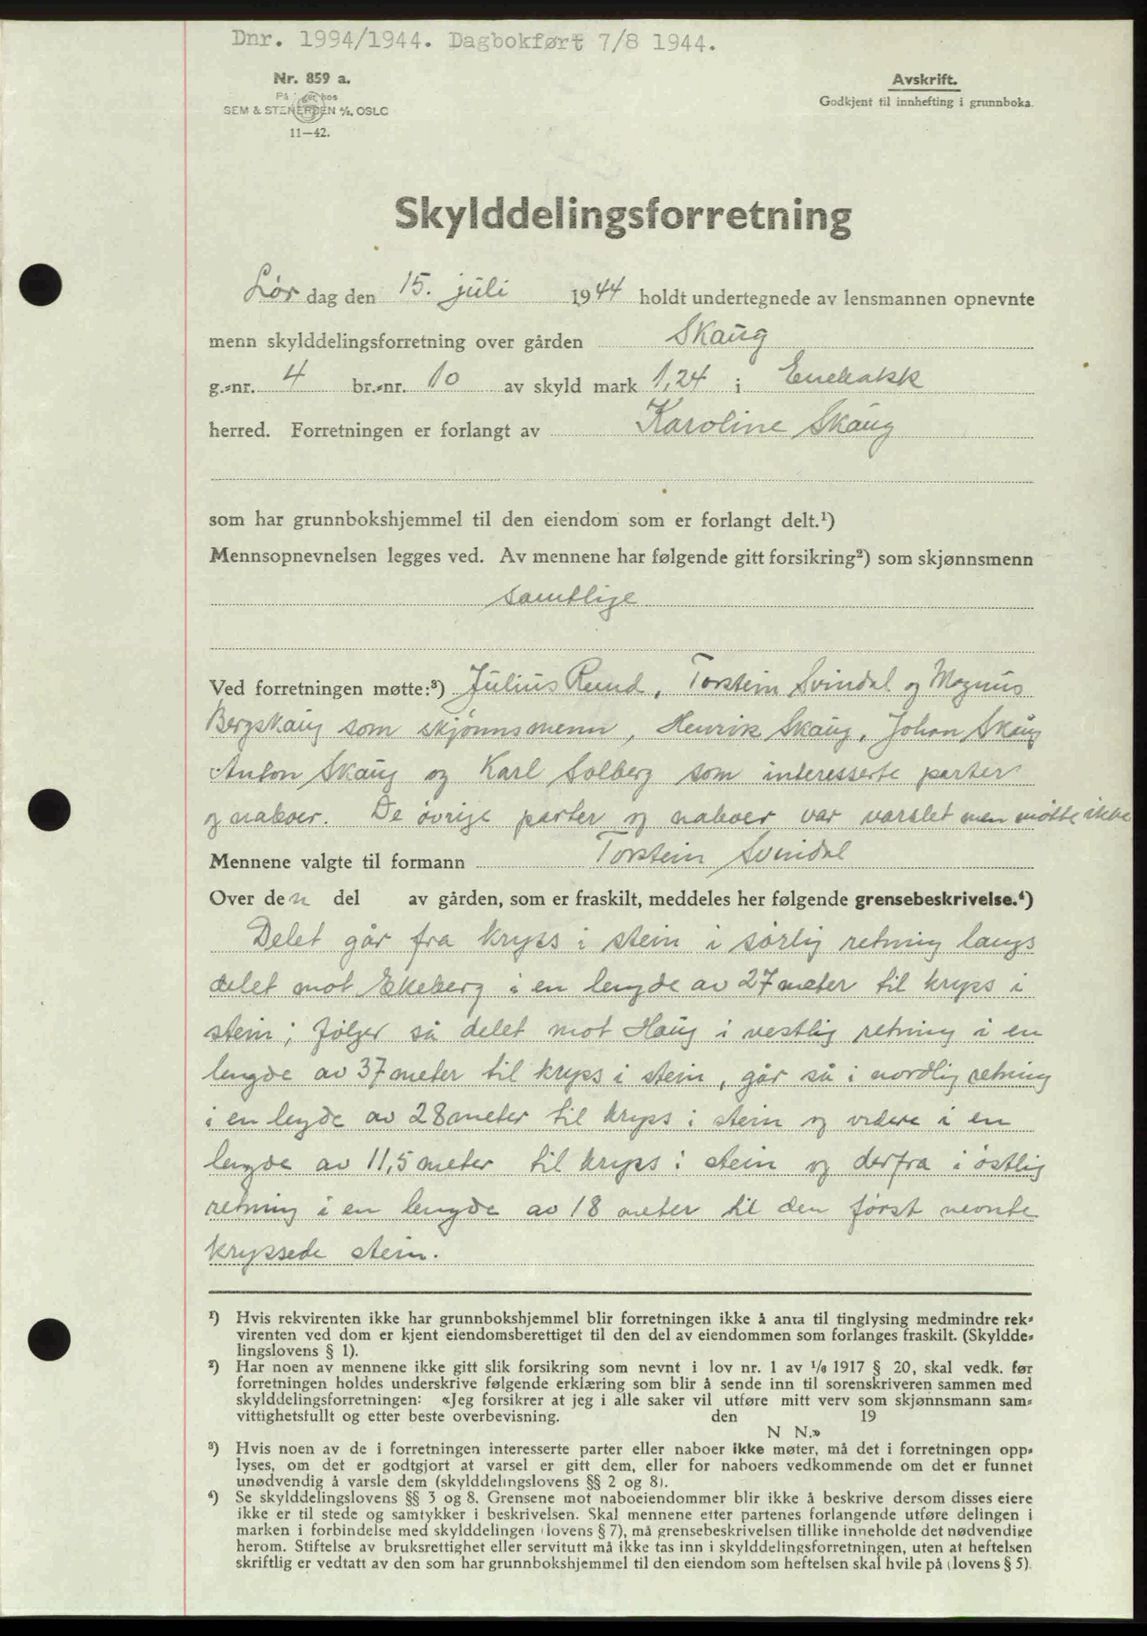 Dnr. 1994/1944. Dagbokført 7/8 1944.
Nr. 859 a.
På lager hos
SEM & STENERSEN A/S, OSLO
11—42.
Avskrift.
Godkjent til innhefting i grunnboka.
Skylddelingsforretning
Lør dag den 15. juli 1944 holdt undertegnede av lensmannen opnevnte
menn skylddelingsforretning over gården Skaug
g.-nr. 4 br.-nr. 10 av skyld mark 1,24 i Enebakk
herred. Forretningen er forlangt av Karoline Skaug
som har grunnbokshjemmel til den eiendom som er forlangt delt.¹)
Mennsopnevnelsen legges ved. Av mennene har følgende gitt forsikring²) som skjønnsmenn
samtlige
Ved forretningen møtte:³) Julius Rund, Torstein Svindal og Magnus
Bergskaug som skjønnsmenn, Henrik Skaug, Johan Skaug
Anton Skaug og Karl Solberg som interesserte parter
og naboer. De øvrige parter og naboer var varslet men møtte ikke
Mennene valgte til formann Torstein Svindal
Over den del av gården, som er fraskilt, meddeles her følgende grensebeskrivelse.⁴)
Delet går fra kryss i stein i sørlig retning langs
delet mot Ekeberg i en lengde av 27 meter til kryss i
stein; følger så delet mot Haug i vestlig retning i en
lengde av 37 meter til kryss i stein, går så i nordlig retning
i en lengde av 28 meter til kryss i stein og videre i en
lengde av 11,5 meter til kryss i stein og derfra i østlig
retning i en lengde av 18 meter til den først nevnte
kryssede stein.
¹) Hvis rekvirenten ikke har grunnbokshjemmel blir forretningen ikke å anta til tinglysing medmindre rek-
virenten ved dom er kjent eiendomsberettiget til den del av eiendommen som forlanges fraskilt. (Skyldde-
lingslovens § 1).
²) Har noen av mennene ikke gitt slik forsikring som nevnt i lov nr. 1 av 1/6 1917 § 20, skal vedk. før
forretningen holdes underskrive følgende erklæring som blir å sende inn til sorenskriveren sammen med
skylddelingsforretningen: «Jeg forsikrer at jeg i alle saker vil utføre mitt verv som skjønnsmann sam-
vittighetsfullt og etter beste overbevisning. den 19
N N.»
³) Hvis noen av de i forretningen interesserte parter eller naboer ikke møter, må det i forretningen opp-
lyses, om det er godtgjort at varsel er gitt dem, eller for naboers vedkommende om det er funnet
unødvendig å varsle dem (skylddelingslovens §§ 2 og 8).
⁴) Se skylddelingslovens §§ 3 og 8. Grensene mot naboeiendommer blir ikke å beskrive dersom disses eiere
ikke er til stede og samtykker i beskrivelsen. Skal mennene etter partenes forlangende utføre delingen i
marken i forbindelse med skylddelingen (lovens § 7), må grensebeskrivelsen tillike inneholde det nødvendige
herom. Stiftelse av bruksrettighet eller servitutt må ikke tas inn i skylddelingsforretningen, uten at heftelsen
skriftlig er vedtatt av den som har grunnbokshjemmel til den eiendom som heftelsen skal hvile på (lovens § 5).